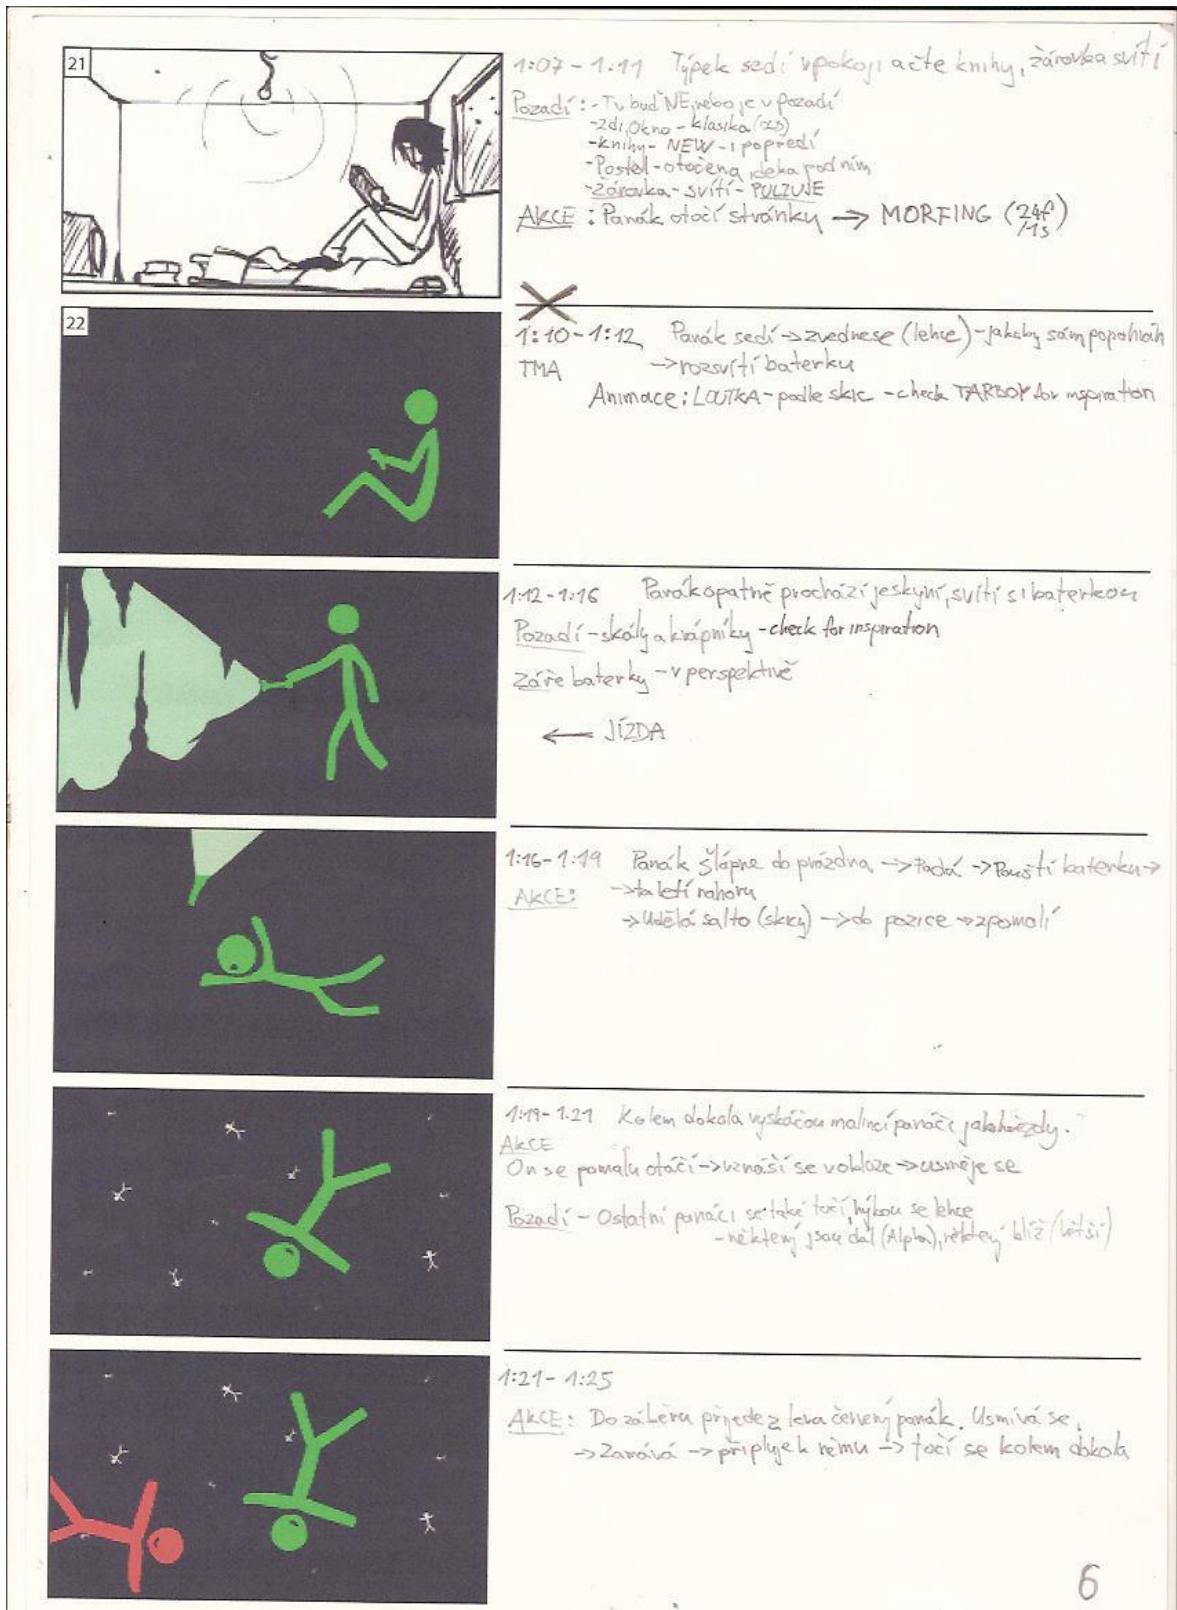 21
1:07 - 1:11 Týpek sedí v pokoji a čte knihy, žárovka svítí
Pozadí: - Tv buď NE, nebo je v pozadí
- zdi, Okno - klasika
- knihy - NEW - i popředí
- Postel - otočená, deka pod ním
- Žárovka - svítí - PULZUJE
AKCE: Panák otočí stránku → MORFING (24f/1s)
22
1:10 - 1:12 Panák sedí → zvedne se (lehce) - jakoby sám
TMA → rozsvítí baterku
Animace: LOUTKA - podle skic - check TARBOY for inspiration
1:12 - 1:16 Panák opatrně prochází jeskyní, svítí si baterkou
Pozadí - skály a krápníky - check for inspiration
Záře baterky - v perspektivě
← JÍZDA
1:16 - 1:19 Panák šlápne do prázdna → Padá → Pouští baterku →
AKCE: → ta letí nahoru
→ Udělá salto (skicy) → do pozice → zpomalí
1:19 - 1:21 Kolem dokola vyskáčou malincí panáčci jako hvězdy.
AKCE
On se pomalu otáčí → vznáší se v obloze → usměje se
Pozadí - Ostatní panáci se také točí, hýbou se lehce
- některý jsou dál (Alpha), některý blíž (větší)
1:21 - 1:25
AKCE: Do záběru přijede z leva červený panák. Usmívá se.
→ Zamává → připluje k němu → točí se kolem dokola
6